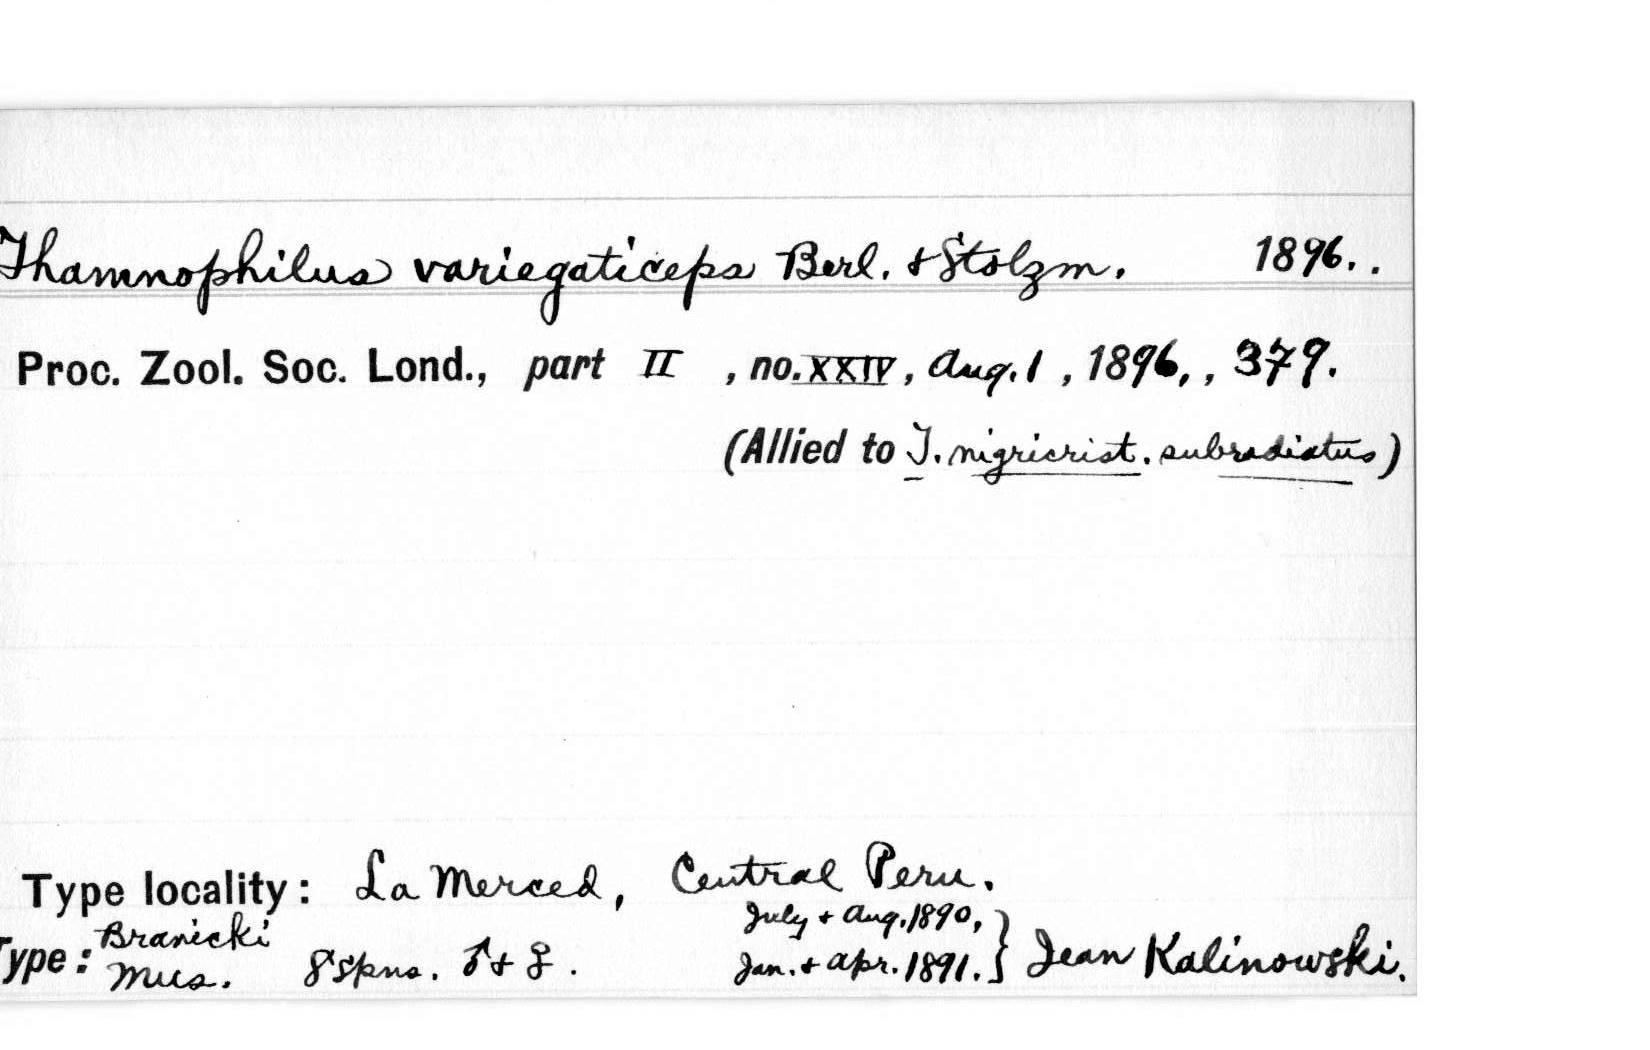 Thamnophilus variegaticeps Berl. & Stolzm. 1896..
Proc. Zool. Soc. Lond., part II , no. XXIV, Aug. 1 , 1896, , 379.
(Allied to T. nigricrist. subradiatus)
Type locality: La Merced, Central Peru.
Type: Branicki Mus. 8 spns. ♂ & ♀. July & Aug. 1890, Jan. & Apr. 1891. } Jean Kalinowski.